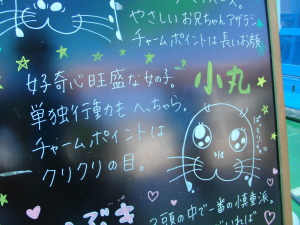 やさしいお兄ちゃんアザラシ
チャームポイントは長いお顔
好奇心旺盛な女の子。
小丸
単独行動も へっちゃら。
チャームポイントは
クリクリの目。
ぱっちり
2頭の中で一番の慎重派。